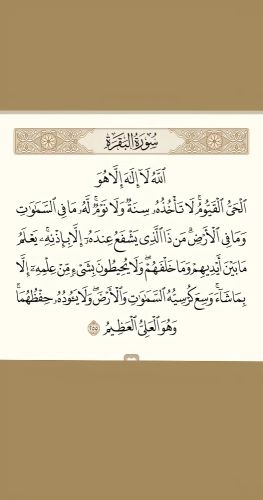 سُورَةُ البَقَرَةِ
اللَّهُ لَا إِلَٰهَ إِلَّا هُوَ
الْحَيُّ الْقَيُّومُ ۚ لَا تَأْخُذُهُ سِنَةٌ وَلَا نَوْمٌ ۚ لَّهُ مَا فِي السَّمَاوَاتِ
وَمَا فِي الْأَرْضِ ۗ مَن ذَا الَّذِي يَشْفَعُ عِندَهُ إِلَّا بِإِذْنِهِ ۚ يَعْلَمُ
مَا بَيْنَ أَيْدِيهِمْ وَمَا خَلْفَهُمْ ۖ وَلَا يُحِيطُونَ بِشَيْءٍ مِّنْ عِلْمِهِ إِلَّا
بِمَا شَاءَ ۚ وَسِعَ كُرْسِيُّهُ السَّمَاوَاتِ وَالْأَرْضَ ۖ وَلَا يَئُودُهُ حِفْظُهُمَا ۚ
وَهُوَ الْعَلِيُّ الْعَظِيمُ ٢٥٥